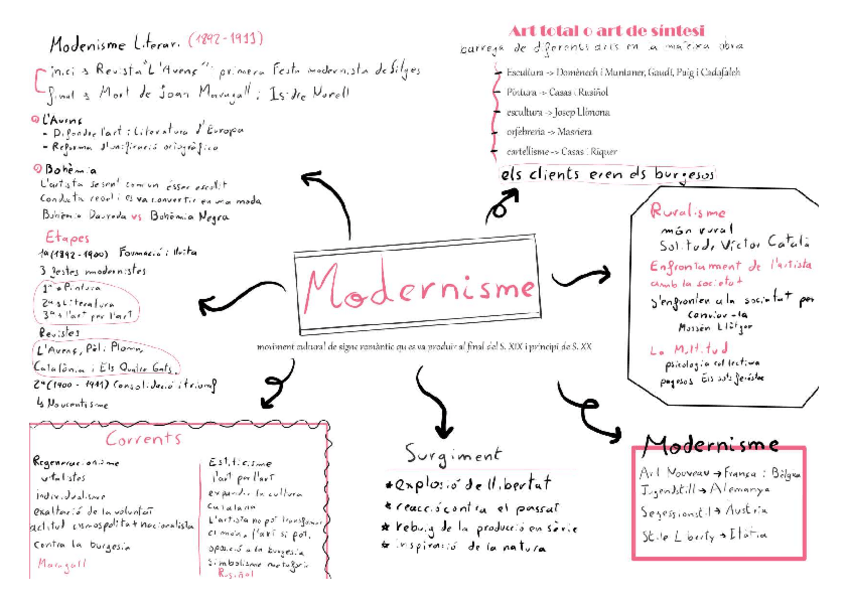 Modenisme Literari (1892-1911)
inici → Revista "L'Avenç" i primera Festa modernista de Sitges
final → Mort de Joan Maragall i Isidre Nonell
① L'Avenç
- Difondre l'art i literatura d'Europa
- Reforma d'unificació ortogràfica
② Bohèmia
L'artista se sent com un ésser escollit
Conducta rebel i es va convertir en una moda
Bohèmia Daurada vs Bohèmia Negra
Etapes
1a (1892-1900) Formació i lluita
3 festes modernistes
1ª → Pintura
2ª → Literatura
3ª → l'art per l'art
Revistes
L'Avenç, Pèl, Ploma,
Catalònia i Els Quatre Gats.
2ª (1900 - 1911) Consolidació i triomf
↳ Noucentisme
Art total o art de síntesi
barreja de diferents arts en la mateixa obra
Escultura -> Domènech i Muntaner, Gaudí, Puig i Cadafalch
Pintura -> Casas i Rusiñol
escultura -> Josep Llimona
orfebreria -> Masriera
cartellisme -> Casas i Riquer
els clients eren els burgesos
Modernisme
moviment cultural de signe romàntic qu es va produir al final del S. XIX i principi de S. XX
Ruralisme
món rural
Solitud, Víctor Català
Enfrontament de l'artista
amb la societat
s'enfronten a la societat per
canviar-la
Mossèn Llàtzer
La Multitud
psicologia col·lectiva
pagesos Els sots feréstec
Corrents
Regeneracionisme
vitalistes
individualisme
exaltació de la voluntat
actitud cosmopolita + nacionalista
contra la burgesia
Maragall
Esteticisme
l'art per l'art
expandir la cultura
catalana
L'artista no pot transformar
el món, l'art si pot.
oposició a la burgesia
simbolisme
Rusiñol
Surgiment
* explosió de llibertat
* reacció contra el passat
* rebuig de la producció en sèrie
* inspiració de la natura
Modernisme
Art Nouveau → França i Bèlgica
Jugendstill → Alemanya
Segessionstil → Austria
Stile Liberty → Itàlia